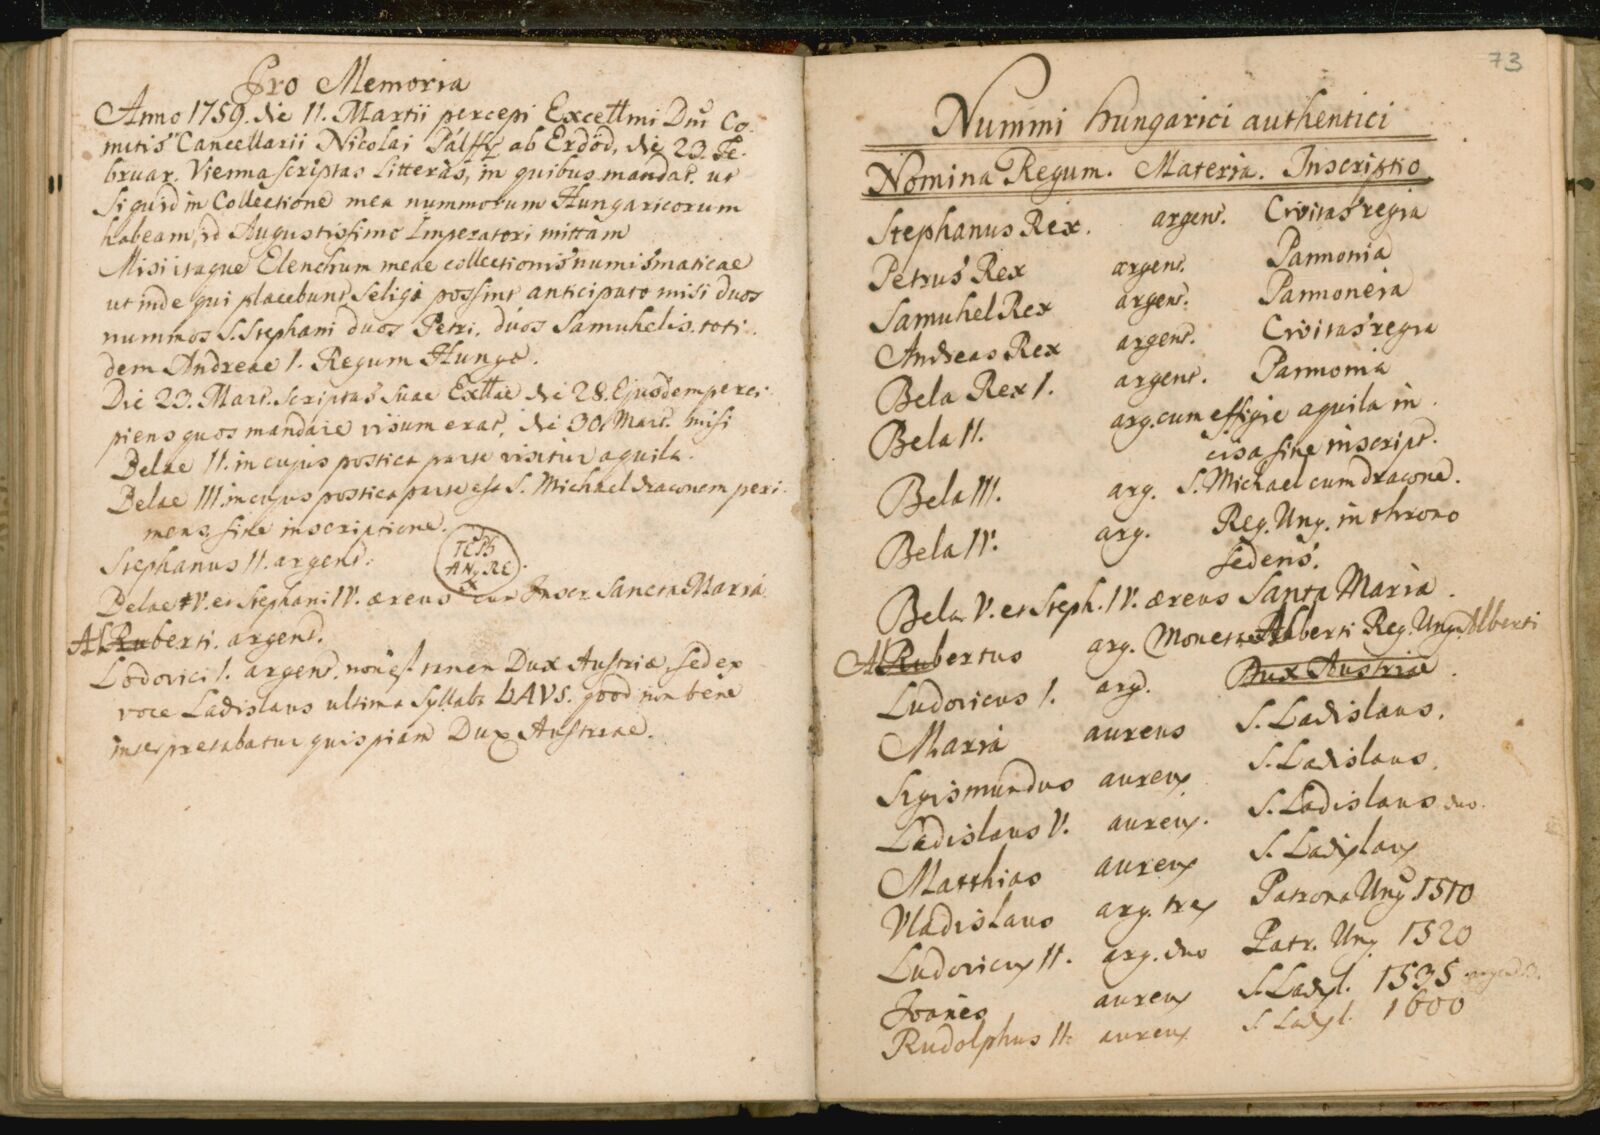 Pro Memoria
Anno 1759. die 11. Martii percepi Excellmi Dni Co-
mitis Cancellarii Nicolai Pálffy ab Erdöd, die 23. Fe-
bruar. Vienna scriptas Litteras, in quibus mandat. ut
siquid in Collectione mea nummorum Hungaricorum
habeam, id Augustissimo Imperatori mittam
Misi itaque Elenchum meae collectionis numismaticae
ut inde qui placebunt seligi possint anticipato misi duos
nummos S. Stephani duos Petri. duos Samuhelis. toti-
dem Andreae 1. Regum Hunge.
Die 23. Mart. scriptas suae Exttae die 28. Ejusdem perci-
piens quos mandare visum erat, die 30. Mart. misi
Belae II. in cujus postica parte visitur aquila.
Belae III. in cujus postica parte est S. Michael draconem peri-
mens, sine inscriptione.
Stephanus II. argent.
TEPh
AN, RE
X
Belae IV. et Stephani IV. aereus cum Inscr Sancta Maria
Al Ruberti. argent.
Lodovici 1. argent. non est tamen Dux Austriae, sed ex
voce Ladislaus ultima syllaba LAVS. quod non bene
interpretabatur quispiam Dux Austriae.
73
Nummi hungarici authentici
Nomina Regum. Materia. Inscriptio.
Stephanus Rex. argent. Civitas regia
Petrus Rex argent. Pannonia
Samuhel Rex argent. Pannoneia
Andreas Rex argent. Civitas regia
Bela Rex 1. argent. Pannonia
Bela II. arg. cum effigie aquila in
cisa sine inscript.
Bela III. arg. S. Michael cum dracone.
Bela IV. arg. Reg. Ung. in throno
sedens.
Bela V. et Steph. IV. aereus Santa Maria.
Al Rubertus arg. Moneta Alberti Reg. Ung. Alberti
Ludovicus 1. arg. Dux Austriae.
Maria aureus S. Ladislaus.
Sigismundus aureus S. Ladislaus.
Ladislaus V. aureus. S. Ladislaus duo.
Matthias aureus S. Ladislaus
Vladislaus arg. tres Patrona Ung 1510
Ludovicus II. arg. duo Patr. Ung. 1520
Joanes aureus S. Ladisl. 1535
Rudolphus II. aureus S. Ladisl. 1600